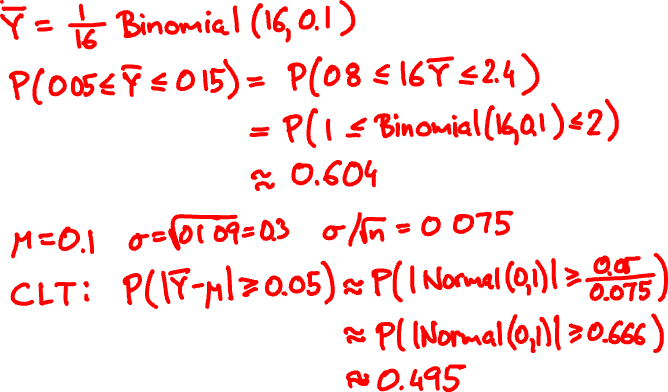 Ȳ = 1/16 Binomial(16, 0.1)
P(0 05 ≤ Ȳ ≤ 0 15) = P(0 8 ≤ 16Ȳ ≤ 2.4)
= P(1 ≤ Binomial(16,0.1) ≤ 2)
≈ 0.604
μ = 0.1 σ = √0 1 0 9 = 0.3 σ/√n = 0 075
CLT: P(|Ȳ-μ| ≥ 0.05) ≈ P(|Normal(0,1)| ≥ 0.05/0.075)
≈ P(|Normal(0,1)| ≥ 0.666)
≈ 0.495